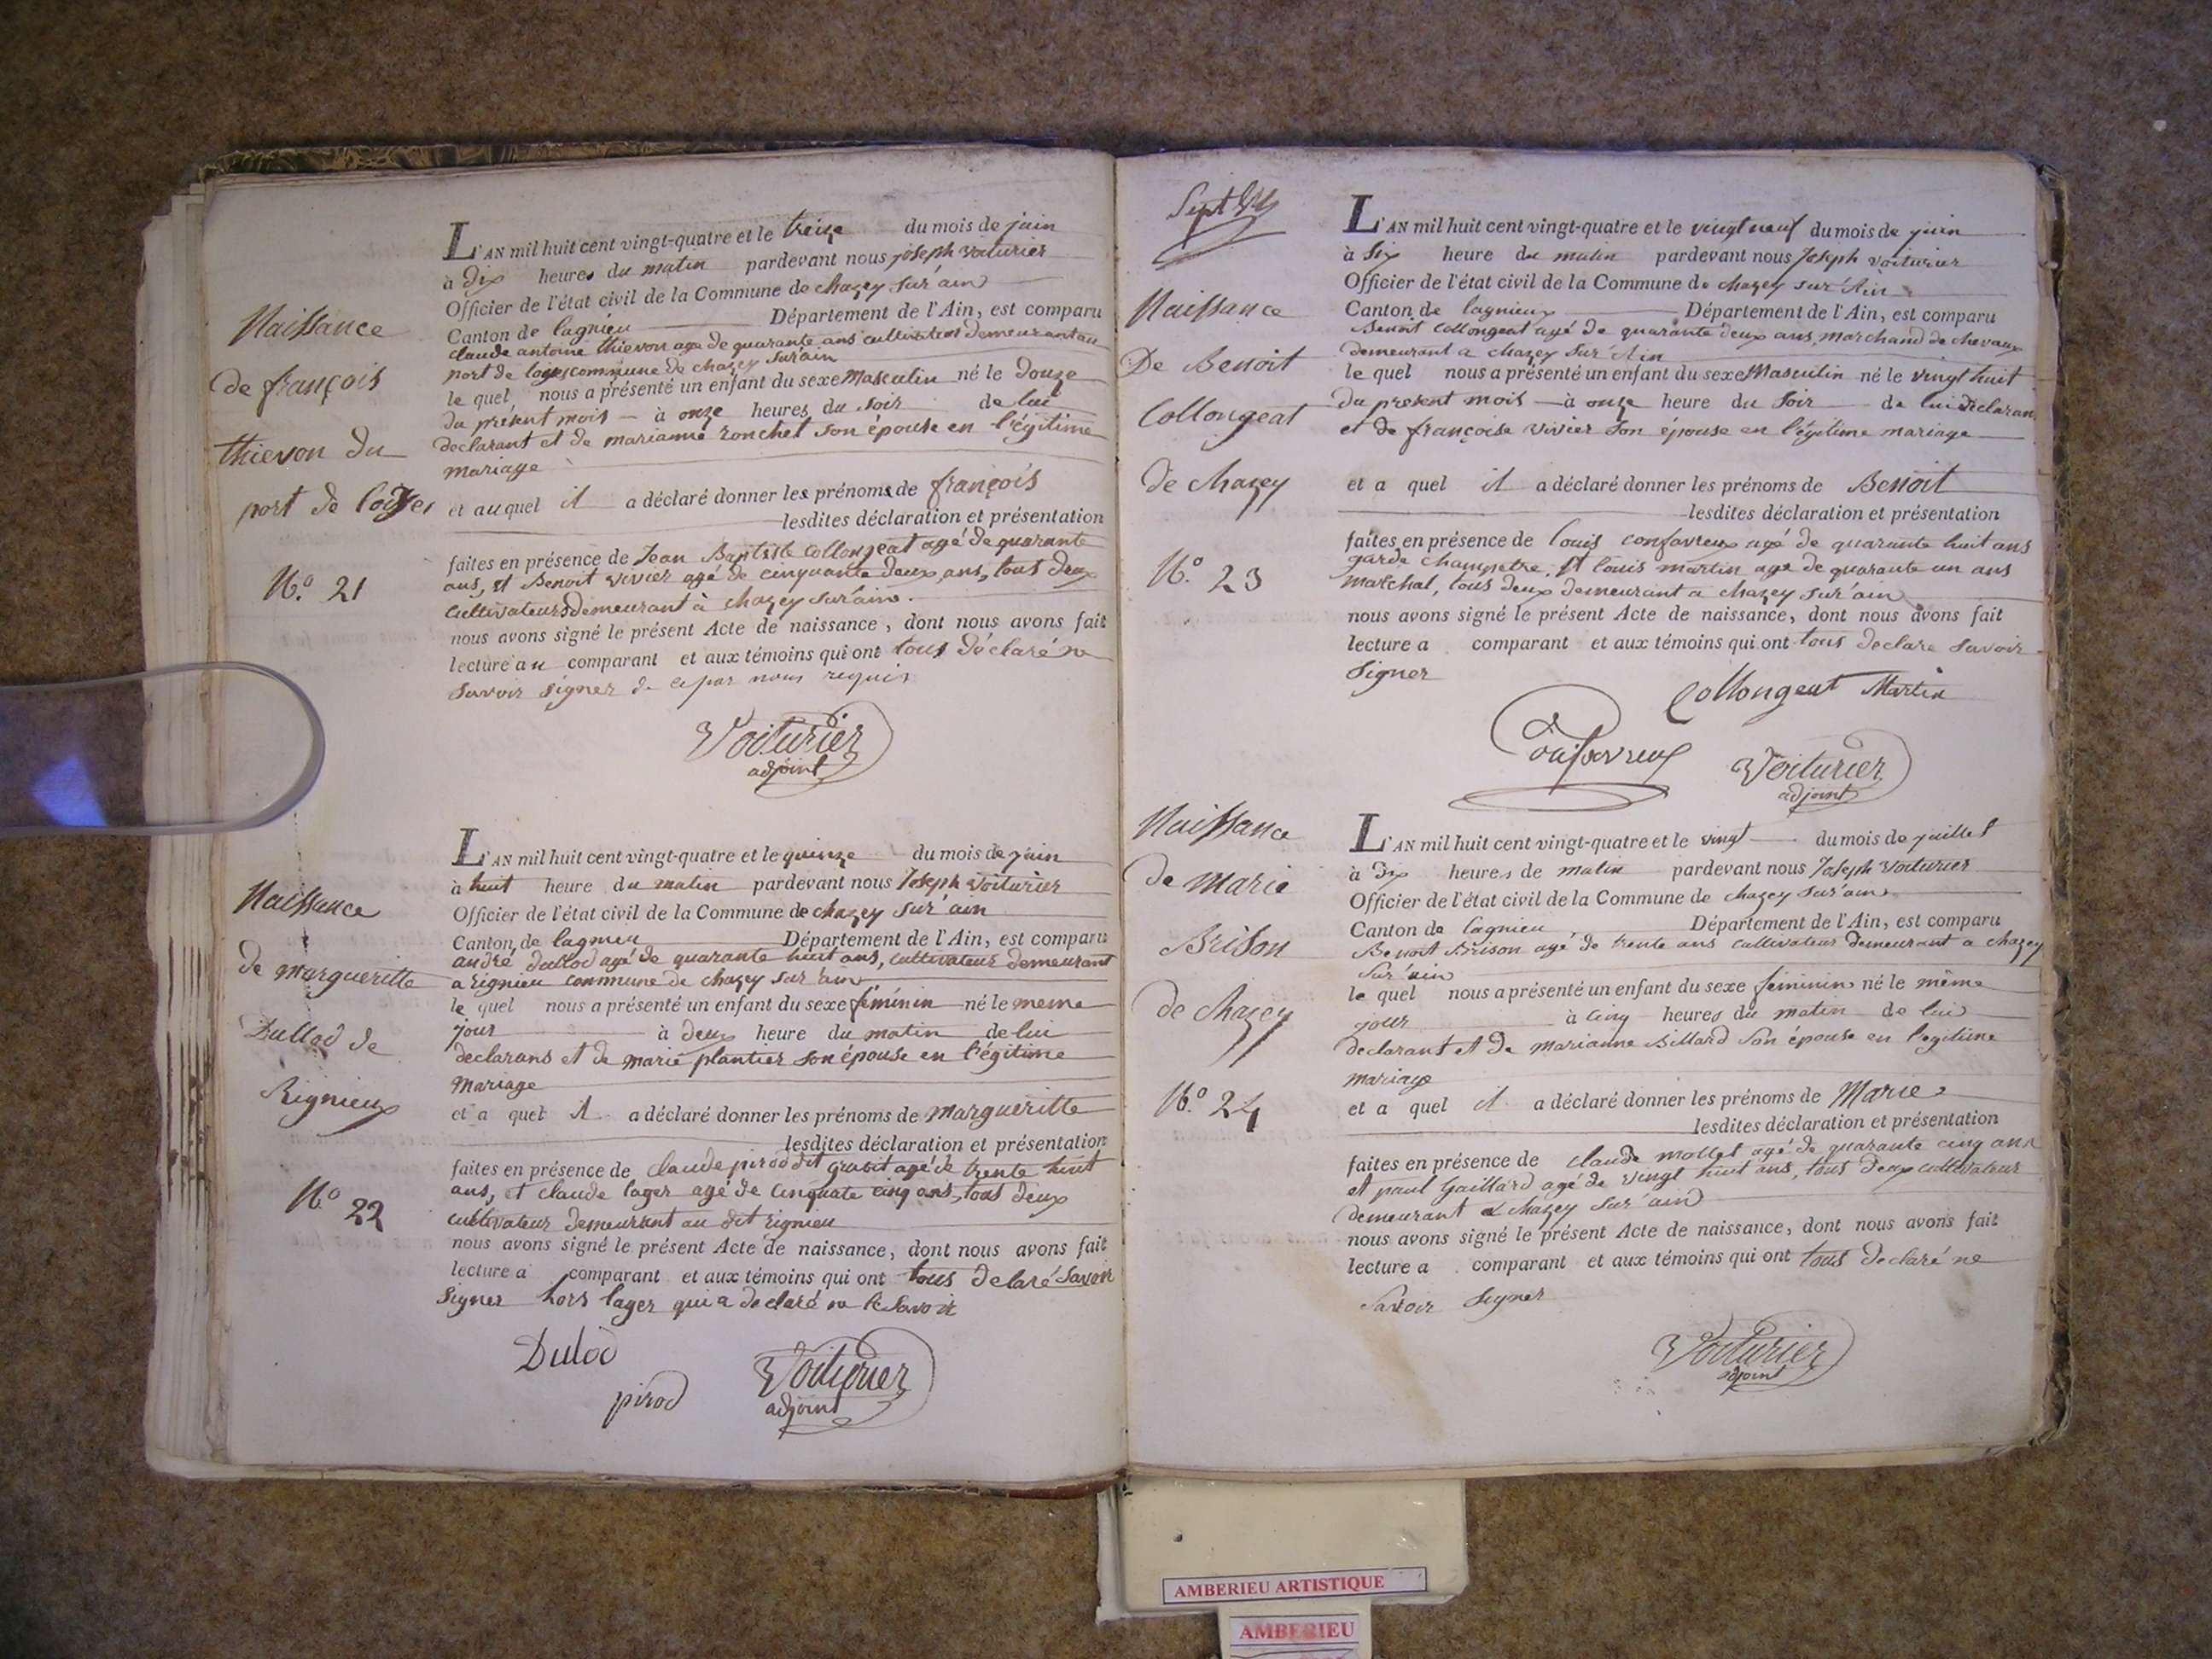 Naissance
de françois
thievon du
port de loyes
N.o 21
L'AN mil huit cent vingt-quatre et le treize du mois de juin
à Dix heures du matin pardevant nous joseph voiturier
Officier de l'état civil de la Commune de chazey sur ain
Canton de lagnieu Département de l'Ain, est comparu
claude antoine thievon age de quarante ans cultivateur demeurant au
port de loyes commune de chazey sur ain
le quel nous a présenté un enfant du sexe Masculin né le douze
du présent mois à onze heures du soir de lui
declarant et de marianne ronchet son épouse en l'égitime
mariage
et au quel il a déclaré donner les prénoms de françois
lesdites déclaration et présentation
faites en présence de Jean Baptiste Collongeat agé de quarante
ans, et Benoit vivier agé de cinquante deux ans, tous deux
cultivateurs demeurant à chazey sur ain.
nous avons signé le présent Acte de naissance, dont nous avons fait
lecture au comparant et aux témoins qui ont tous déclaré ne
savoir signer de ce par nous requis
Voiturier
adjoint
Naissance
de margueritte
Dullod de
Rignieux
N.o 22
L'AN mil huit cent vingt-quatre et le quinze du mois de juin
à huit heure du matin pardevant nous Joseph Voiturier
Officier de l'état civil de la Commune de chazey sur ain
Canton de lagnieu Département de l'Ain, est comparu
andré dullod agé de quarante huit ans, cultivateur demeurant
a rignieu commune de chazey sur ain
le quel nous a présenté un enfant du sexe féminin né le meme
jour à deux heure du matin de lui
declarans et de marie plantier son épouse en l'égitime
mariage
et a quel il a déclaré donner les prénoms de margueritte
lesdites déclaration et présentation
faites en présence de claude pirod dit agé de trente huit
ans, et claude lager agé de cinquate cinq ans, tous deux
cultivateur demeurant au dit rignieu
nous avons signé le présent Acte de naissance, dont nous avons fait
lecture a comparant et aux témoins qui ont tous declaré savoir
signer hors lager qui a declaré ne le savoir
Dulod
pirod
Voiturier
adjoint
Naissance
De Benoit
Collongeat
de chazey
N.o 23
L'AN mil huit cent vingt-quatre et le vingt neuf du mois de juin
à six heure du matin pardevant nous Joseph voiturier
Officier de l'état civil de la Commune de chazey sur Ain
Canton de lagnieux Département de l'Ain, est comparu
Benoit Collongeat agé de quarante deux ans, marchand de chevaux
demeurant a chazey sur Ain
le quel nous a présenté un enfant du sexe Masculin né le vingt huit
du present mois à onze heure du soir de lui déclarant
et de françoise vivier son épouse en l'égitime mariage
et a quel il a déclaré donner les prénoms de Benoit
lesdites déclaration et présentation
faites en présence de louis confavreux agé de quarante huit ans
garde champetre, et louis martin age de quarante un ans
marechal, tous deux demeurant a chazey sur ain
nous avons signé le présent Acte de naissance, dont nous avons fait
lecture a comparant et aux témoins qui ont tous declare savoir
signer
Collongeat Martin
Confavreux
Voiturier
adjoint
Naissance
de Marie
Brison
de chazey
N.o 24
L'AN mil huit cent vingt-quatre et le vingt du mois de juillet
à dix heures de matin pardevant nous Joseph Voiturier
Officier de l'état civil de la Commune de chazey sur ain
Canton de lagnieu Département de l'Ain, est comparu
Benoit Brison agé de trente ans cultivateur demeurant a chazey
sur ain
le quel nous a présenté un enfant du sexe féminin né le même
jour à cinq heures du matin de lui
declarant et de marianne Billard son épouse en l'egitime
mariage
et a quel il a déclaré donner les prénoms de Marie
lesdites déclaration et présentation
faites en présence de claude mollet agé de quarante cinq ans
et paul Gaillard agé de vingt huit ans, tous deux cultivateur
demeurant a chazey sur ain
nous avons signé le présent Acte de naissance, dont nous avons fait
lecture a comparant et aux témoins qui ont tous declaré ne
savoir signer
Voiturier
adjoint
AMBERIEU ARTISTIQUE
AMBERIEU